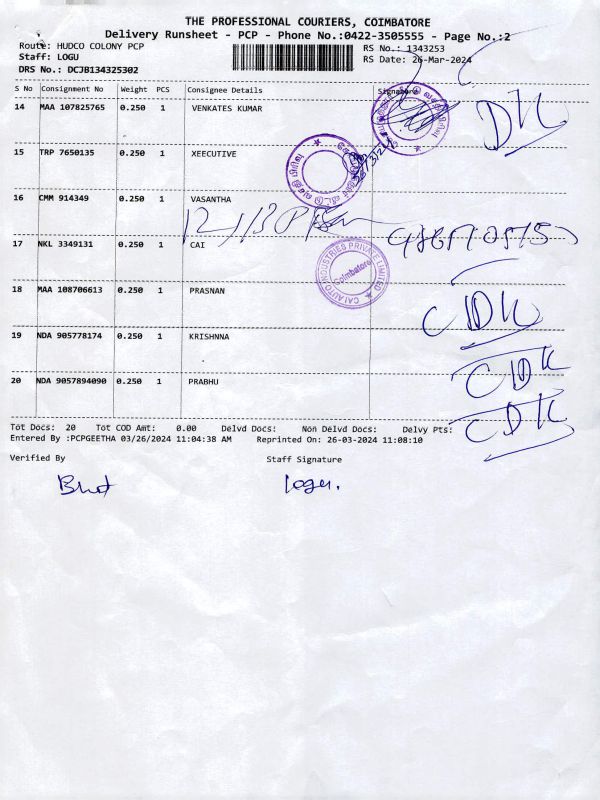 THE PROFESSIONAL COURIERS, COIMBATORE
Delivery Runsheet - PCP - Phone No.:0422-3505555 - Page No.:2
Route: HUDCO COLONY PCP RS No.: 1343253
Staff: LOGU RS Date: 26-Mar-2024
DRS No.: DCJB134325302
S No Consignment No Weight PCS Consignee Details Signature
14 MAA 107825765 0.250 1 VENKATES KUMAR
15 TRP 7650135 0.250 1 XEECUTIVE
16 CMM 914349 0.250 1 VASANTHA
17 NKL 3349131 0.250 1 CAI
CAI AUTO INDUSTRIES PRIVATE LIMITED
Coimbatore
18 MAA 108706613 0.250 1 PRASNAN
19 NDA 905778174 0.250 1 KRISHNNA
20 NDA 9057894090 0.250 1 PRABHU
Tot Docs: 20 Tot COD Amt: 0.00 Delvd Docs: Non Delvd Docs: Delvy Pts:
Entered By :PCPGEETHA 03/26/2024 11:04:38 AM Reprinted On: 26-03-2024 11:08:10
Verified By Staff Signature
logu.